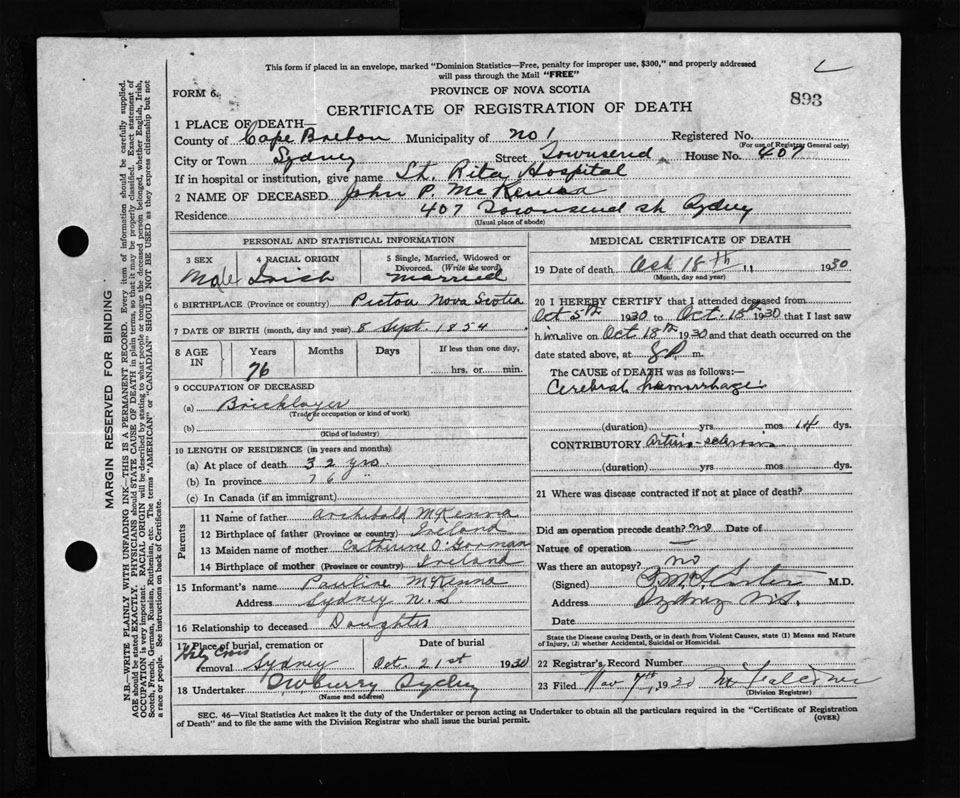 This form if placed in an envelope, marked "Dominion Statistics—Free, penalty for improper use, $300," and properly addressed
will pass through the Mail "FREE"
PROVINCE OF NOVA SCOTIA
FORM 6.
893
CERTIFICATE OF REGISTRATION OF DEATH
1 PLACE OF DEATH—
County of Cape Breton Municipality of No 1 Registered No.
(For use of Registrar General only)
City or Town Sydney Street Townsend House No. 407
If in hospital or institution, give name St. Rita Hospital
2 NAME OF DECEASED John P. McKenna
Residence 407 Townsend st Sydney
(Usual place of abode)
PERSONAL AND STATISTICAL INFORMATION
3 SEX 4 RACIAL ORIGIN 5 Single, Married, Widowed or Divorced. (Write the word)
Male Irish Married
6 BIRTHPLACE (Province or country) Pictou Nova Scotia
7 DATE OF BIRTH (month, day and year) 8 Sept. 1854
8 AGE IN Years Months Days If less than one day,
76 hrs. or min.
9 OCCUPATION OF DECEASED
(a) Bricklayer
(Trade or occupation or kind of work)
(b)
(Kind of industry)
10 LENGTH OF RESIDENCE (in years and months)
(a) At place of death 32 yrs
(b) In province 76 "
(c) In Canada (if an immigrant)
Parents
11 Name of father Archibald McKenna
12 Birthplace of father (Province or country) Ireland
13 Maiden name of mother Catherine O'Gorman
14 Birthplace of mother (Province or country) Ireland
15 Informant's name Pauline McKenna
Address Sydney N.S
16 Relationship to deceased Daughter
17 Place of burial, cremation or Date of burial
Holy Cross
removal Sydney Oct. 21st 1930
18 Undertaker Sydney
(Name and address)
MEDICAL CERTIFICATE OF DEATH
19 Date of death Oct 18th 1930
(Month, day and year)
20 I HEREBY CERTIFY that I attended deceased from
Oct 5th 1930 to Oct. 18th 1930 that I last saw
him alive on Oct 18th 1930 and that death occurred on the
date stated above, at 8 P m.
The CAUSE of DEATH was as follows:—
Cerebral hemorrhage
(duration) yrs mos 14 dys.
CONTRIBUTORY Arterio-sclerosis
(duration) yrs. mos. dys.
21 Where was disease contracted if not at place of death?
Did an operation precede death? no Date of
Nature of operation —
Was there an autopsy? no
(Signed) M.D.
Address Sydney N.S.
Date
State the Disease causing Death, or in death from Violent Causes, state (1) Means and Nature
of Injury, (2) whether Accidental, Suicidal or Homicidal.
22 Registrar's Record Number
23 Filed Nov 7th, 1930
(Division Registrar)
SEC. 46—Vital Statistics Act makes it the duty of the Undertaker or person acting as Undertaker to obtain all the particulars required in the "Certificate of Registration
of Death" and to file the same with the Division Registrar who shall issue the burial permit.
(OVER)
MARGIN RESERVED FOR BINDING
N.B.—WRITE PLAINLY WITH UNFADING INK—THIS IS A PERMANENT RECORD. Every item of information should be carefully supplied.
AGE should be stated EXACTLY. PHYSICIANS should STATE CAUSE OF DEATH in plain terms, so that it may be properly classified. Exact statement of
OCCUPATION is very important. RACIAL ORIGIN will be described by stating to what people or tongue the deceased person belonged, whether English, Irish,
Scotch, French, German, Russian, Ruthenian, etc. The terms "AMERICAN" or "CANADIAN" SHOULD NOT BE USED as they express citizenship but not
a race or people. See instructions on back of Certificate.